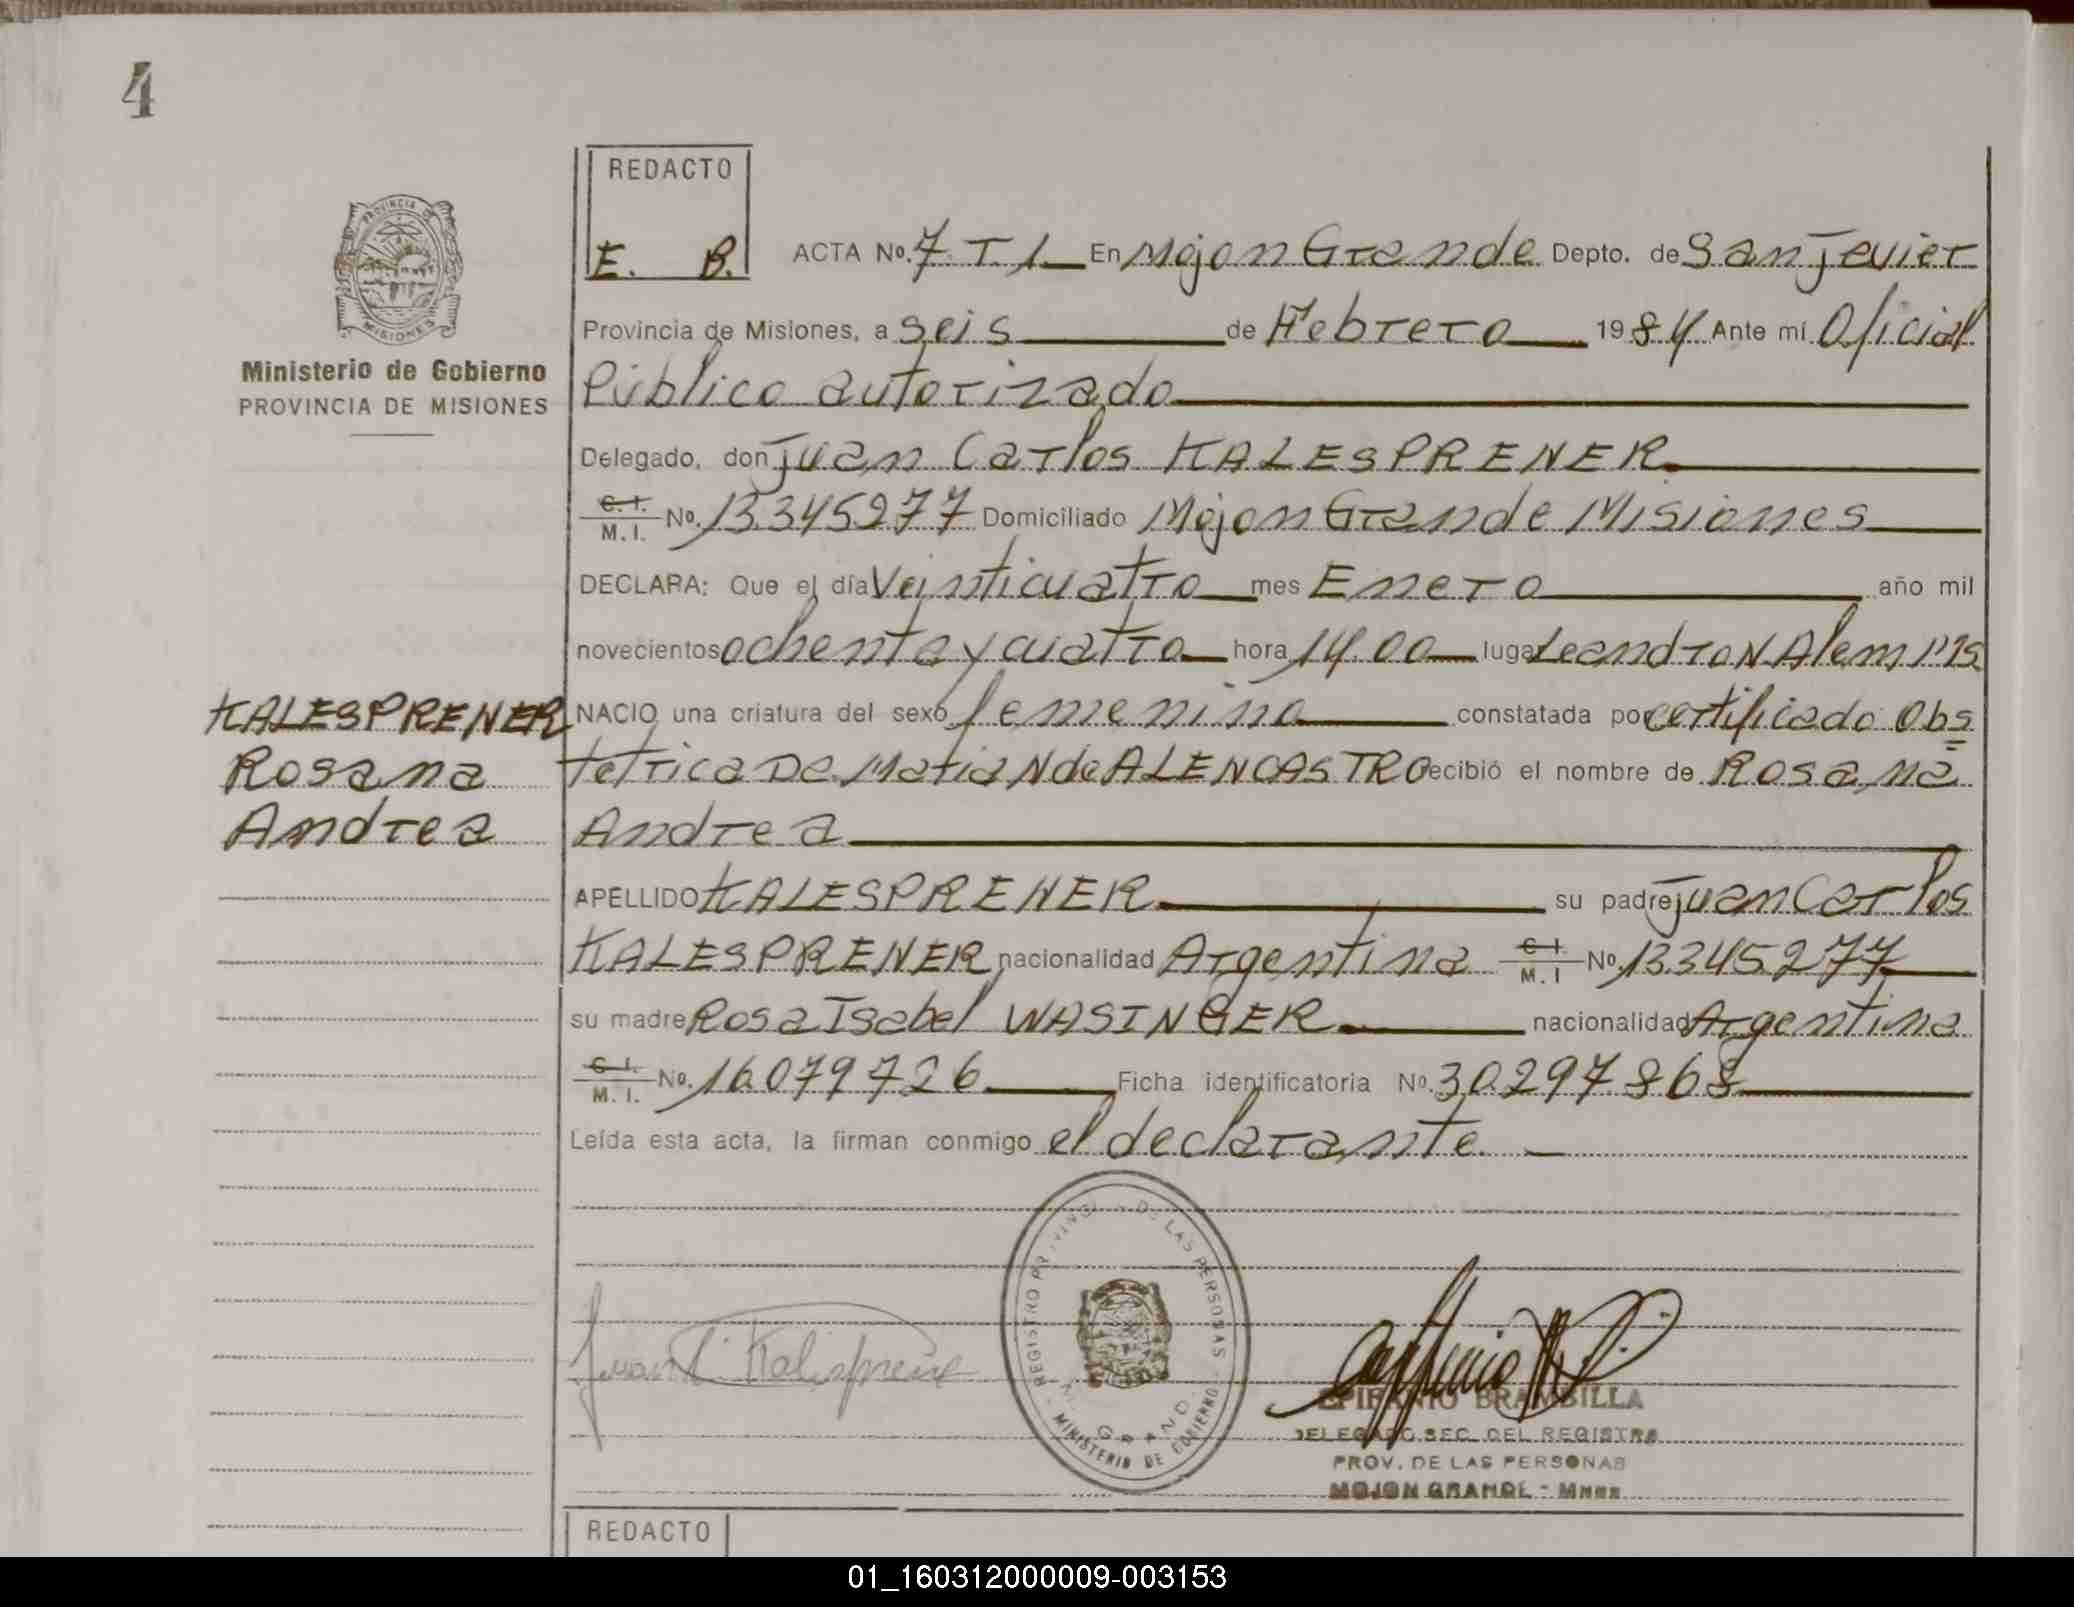 4
REDACTO
E. B.
ACTA No. 7 T 1 En Mojon Grande Depto. de San Javier
PROVINCIA DE
MISIONES
Ministerio de Gobierno
PROVINCIA DE MISIONES
Provincia de Misiones, a seis de Febrero 1984 Ante mí Oficial
Público autorizado
Delegado, don Juan Carlos KALESPRENER
C. I. M. I. No. 13.345.277 Domiciliado Mojon Grande Misiones
DECLARA: Que el día Veinticuatro mes Enero año mil
novecientos ochenta y cuatro hora 14.00 lugar Leandro N Alem
KALESPRENER
Rosana
Andrea
NACIO una criatura del sexo femenino constatada por certificado Obs
tetrica De Maria N de ALENCASTRO recibió el nombre de Rosana
Andrea
APELLIDO KALESPRENER su padre Juan Carlos
KALESPRENER nacionalidad Argentina C. I. M. I No. 13.345.277
su madre Rosa Isabel WASINGER nacionalidad Argentina
C. I. M. I. No. 16.079.726 Ficha identificatoria No. 30.297.868
Leída esta acta, la firman conmigo el declarante.
REGISTRO PROVINCIAL DE LAS PERSONAS
M. GRANDE
MINISTERIO DE GOBIERNO
EPIFANIO BRAMBILLA
DELEGADO SEC. DEL REGISTRO
PROV. DE LAS PERSONAS
MOJON GRANDE - Mnes
REDACTO
01_160312000009-003153